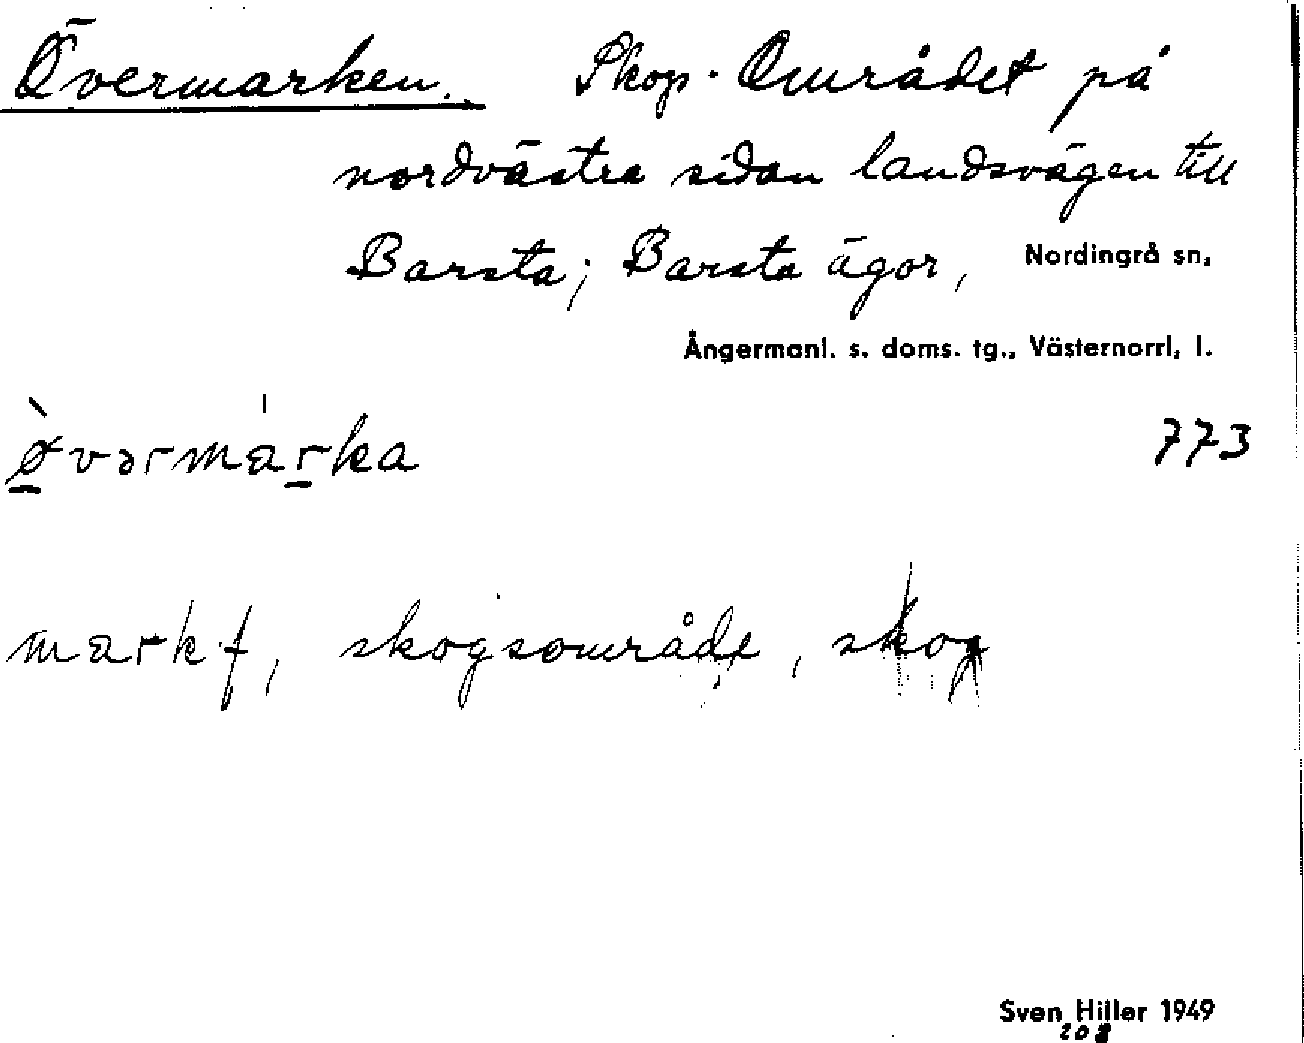 Övermarken. Skog. Området på
nordvästra sidan landsvägen till
Barsta; Barsta ägor, Nordingrå sn,
Ångermanl. s. doms. tg., Västernorrl, l.
773
mark f, skogsområde, skog
Sven Hiller 1949
208